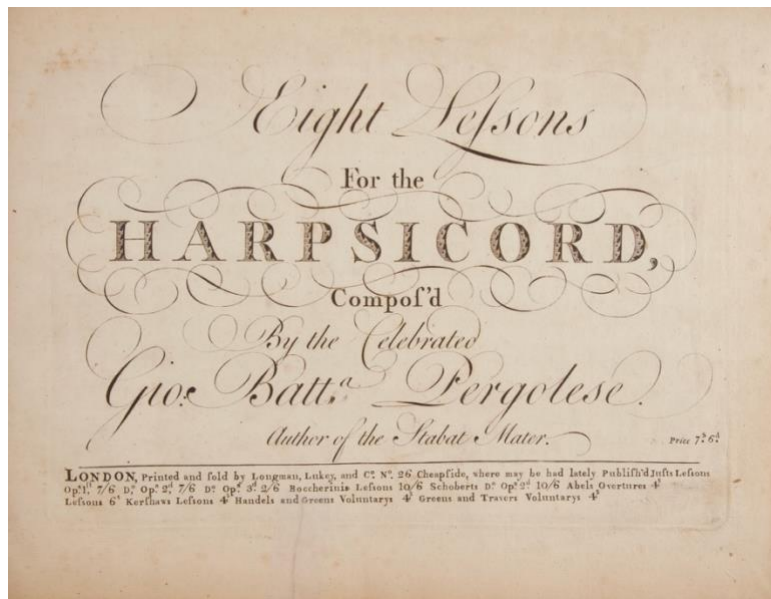 Eight Leſsons
For the
HARPSICORD,
Compoſ'd
By the Celebrated
Gio: Batt.a Pergolese.
Author of the Stabat Mater.
Price 7.s 6.d
LONDON, Printed and ſold by Longman, Lukey, and Co. No. 26. Cheapſide, where may be had lately Publiſh'd Juſts Leſsons
Op.a 1.st 7/6 Do. Op.a 2.d 7/6 Do. Op.a 3.d 2/6 Boccherinis Leſsons 10/6 Schoberts Do. Op.a 2.d 10/6 Abels Overtures 4.s
Leſsons 6.s Kerſhaws Leſsons 4.s Handels and Greens Voluntarys 4.s Greens and Travers Voluntarys 4.s